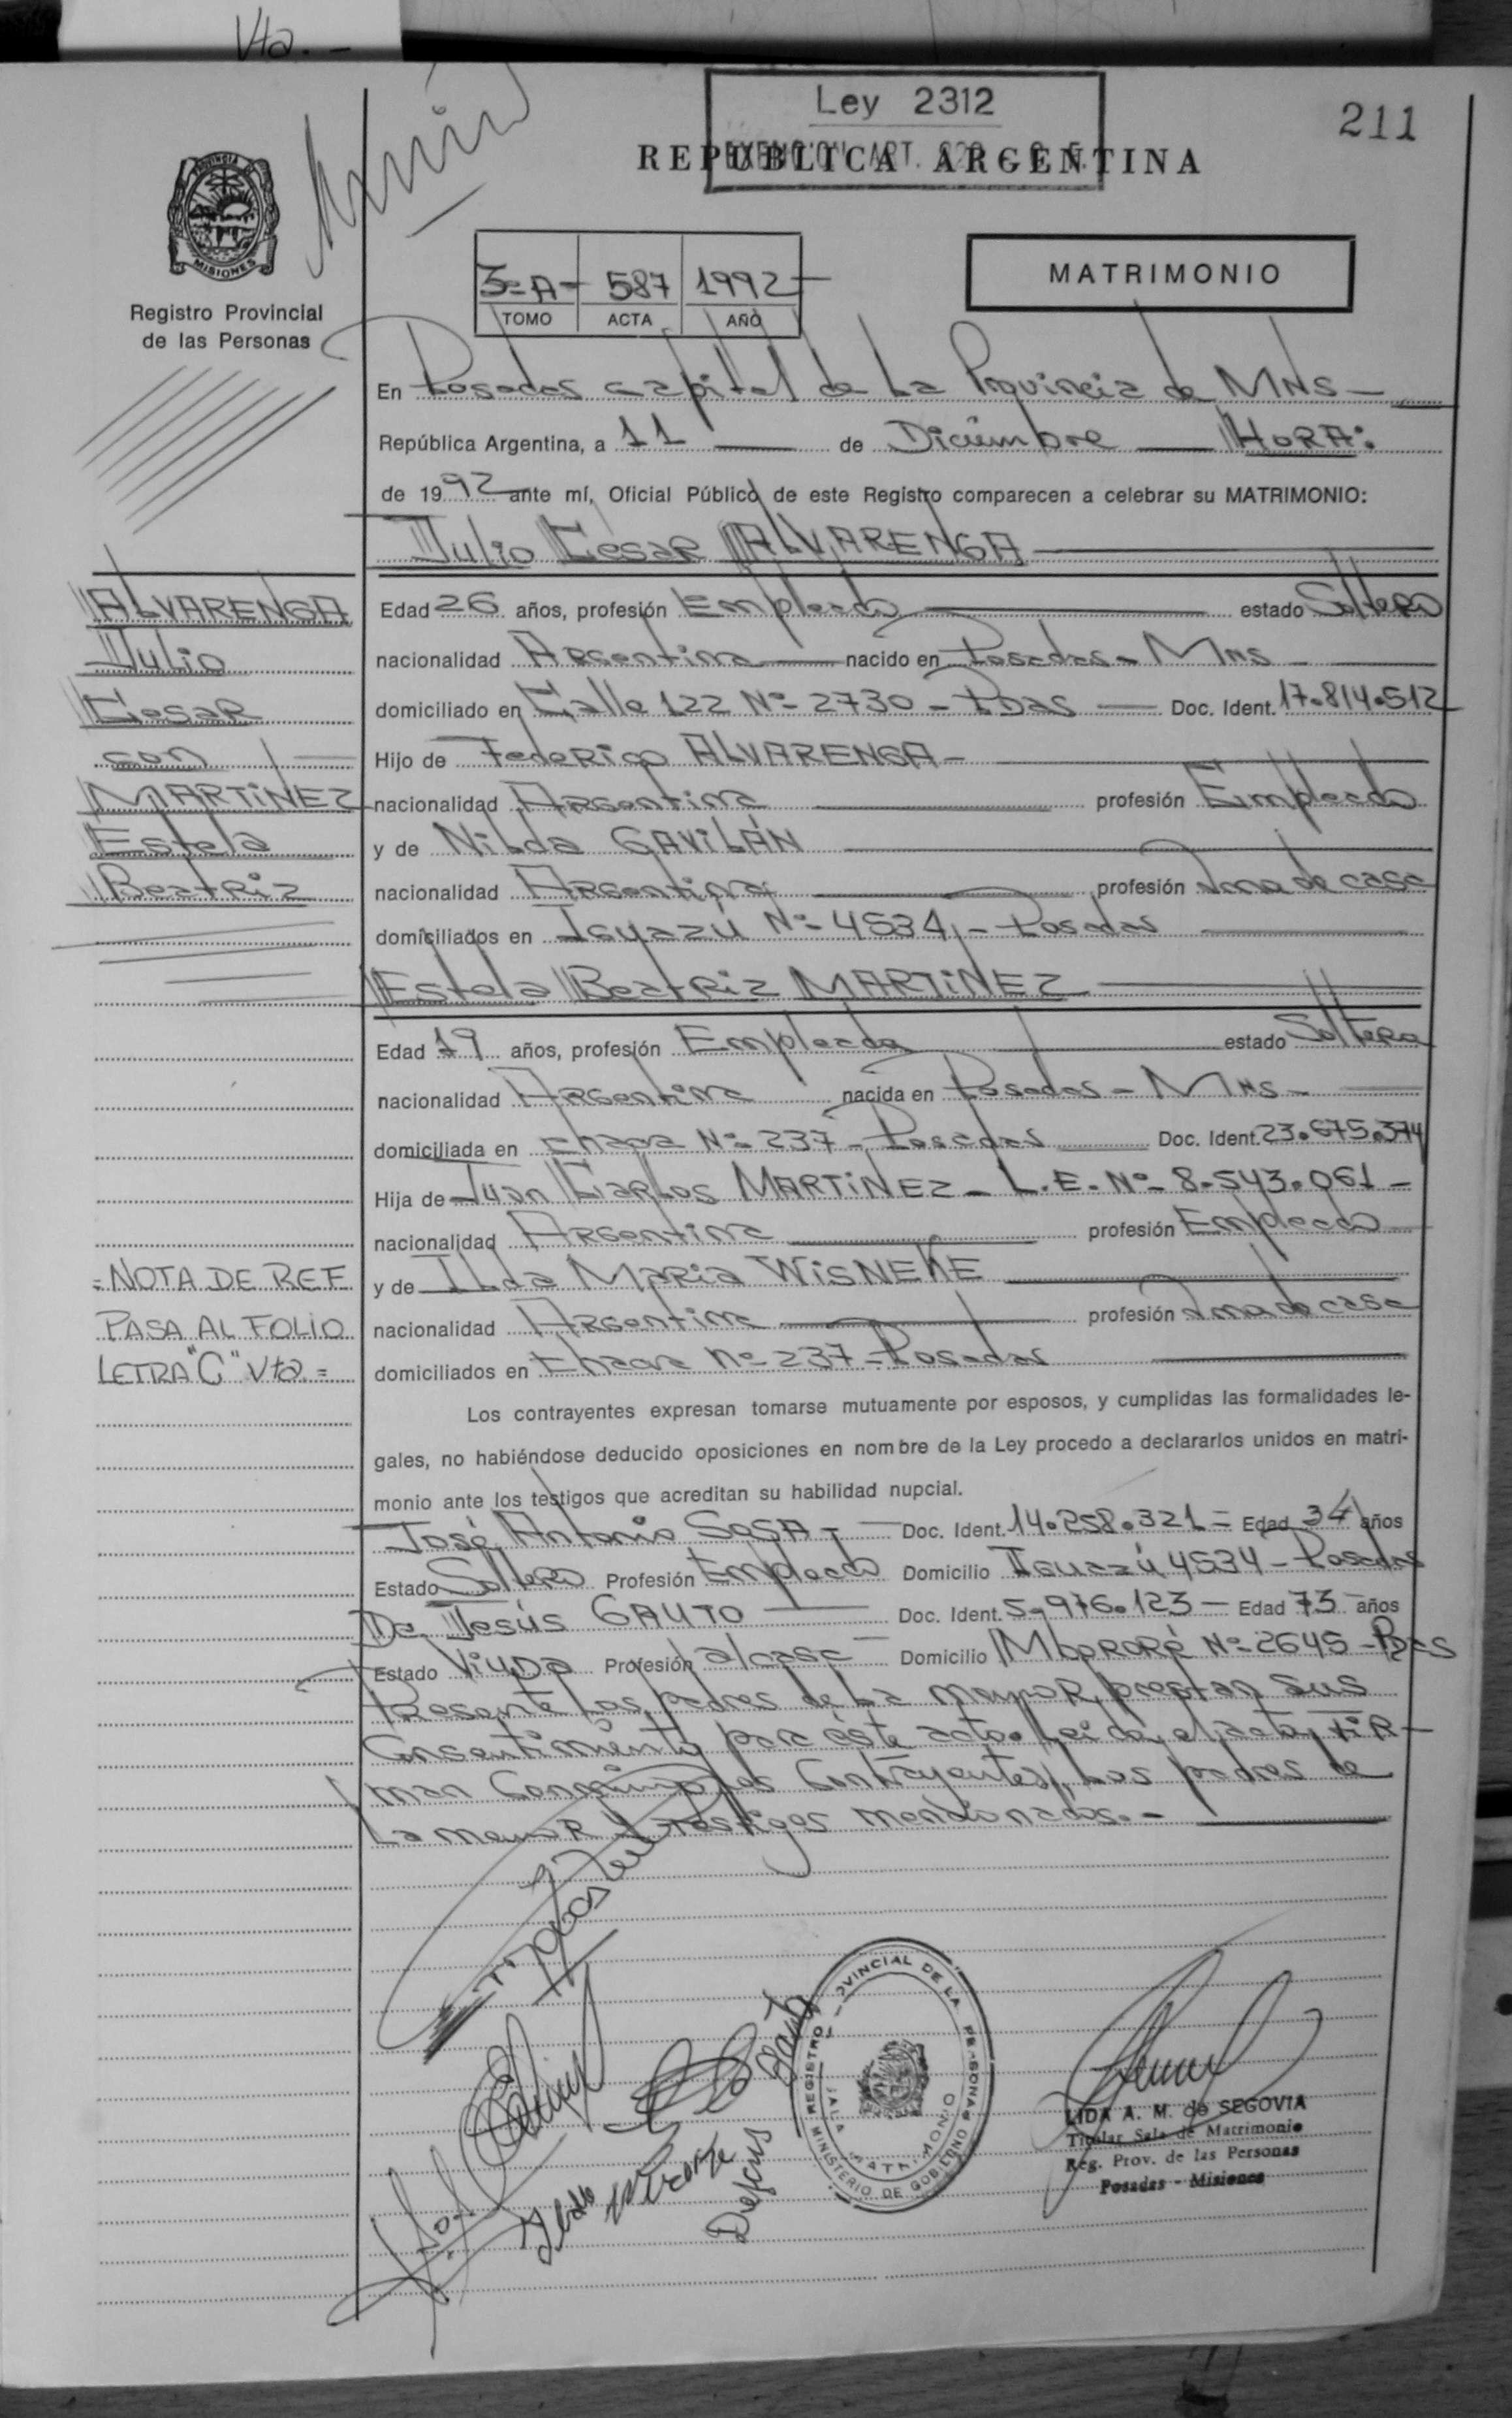 Vta. -
Ley 2312
211
REPUBLICA ARGENTINA
PROVINCIA
MISIONES
Registro Provincial
de las Personas
3º A - 587 1992
TOMO ACTA AÑO
MATRIMONIO
En Posadas capital de La Provincia de MNS -
República Argentina, a 11 de Diciembre HORA:
de 1992 ante mí, Oficial Público de este Registro comparecen a celebrar su MATRIMONIO:
Julio César ALVARENGA
ALVARENGA
Julio
Cesar
con
MARTINEZ
Estela
Beatriz
Edad 26 años, profesión Empleado estado Soltero
nacionalidad Argentina nacido en Posadas - Mns
domiciliado en Calle 122 Nº 2730 - Pdas Doc. Ident. 17.814.512
Hijo de Federico ALVARENGA -
nacionalidad Argentina profesión Empleado
y de Nilda GAVILÁN
nacionalidad Argentina profesión Ama de casa
domiciliados en Iguazú Nº 4534 - Posadas
Estela Beatriz MARTINEZ
Edad 19 años, profesión Empleada estado Soltera
nacionalidad Argentina nacida en Posadas - Mns -
domiciliada en Chacra Nº 237 - Posadas Doc. Ident. 23.675.374
Hija de Juan Carlos MARTINEZ - L.E. Nº 8.543.061 -
nacionalidad Argentina profesión Empleado
y de Ilda Maria WISNEKE
nacionalidad Argentina profesión Ama de casa
domiciliados en Chacra Nº 237 - Posadas
= NOTA DE REF.
PASA AL FOLIO
LETRA "C" Vta. =
Los contrayentes expresan tomarse mutuamente por esposos, y cumplidas las formalidades le-
gales, no habiéndose deducido oposiciones en nombre de la Ley procedo a declararlos unidos en matri-
monio ante los testigos que acreditan su habilidad nupcial.
José Antonio SOSA - Doc. Ident. 14.258.321 = Edad 34 años
Estado Soltero Profesión Empleado Domicilio Iguazú 4534 - Posadas
De Jesús GAUTO Doc. Ident. 5.976.123 - Edad 73 años
Estado Viuda Profesión a/casa Domicilio Mbororé Nº 2645 - Pdas
Presente los padres de La menor, prestan sus
Consentimiento para éste acto. Leida el acta, FIR-
man Conmigo los Contrayentes, Los padres de
La menor y testigos mencionados. -
Dejesus Gauto
REGISTRO PROVINCIAL DE LA PERSONAS
SALA MATRIMONIO
MINISTERIO DE GOBIERNO
LIDA A. M. de SEGOVIA
Titular Sala de Matrimonio
Reg. Prov. de las Personas
Posadas - Misiones